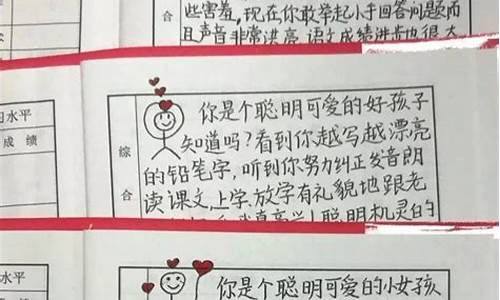 些害羞,现在你敢举起小手回答问题而
合
且声音非常洪亮.语文成绩进步也很大
习水平
成 绩
综
合
你是个聪明可爱的好孩子
知道吗?看到你越写越漂亮
的铅笔字,听到你努力纠正发音朗
读课文,上学.放学有礼貌地跟老
真高兴!聪明机灵的
水平
你是个聪明可爱的小女孩